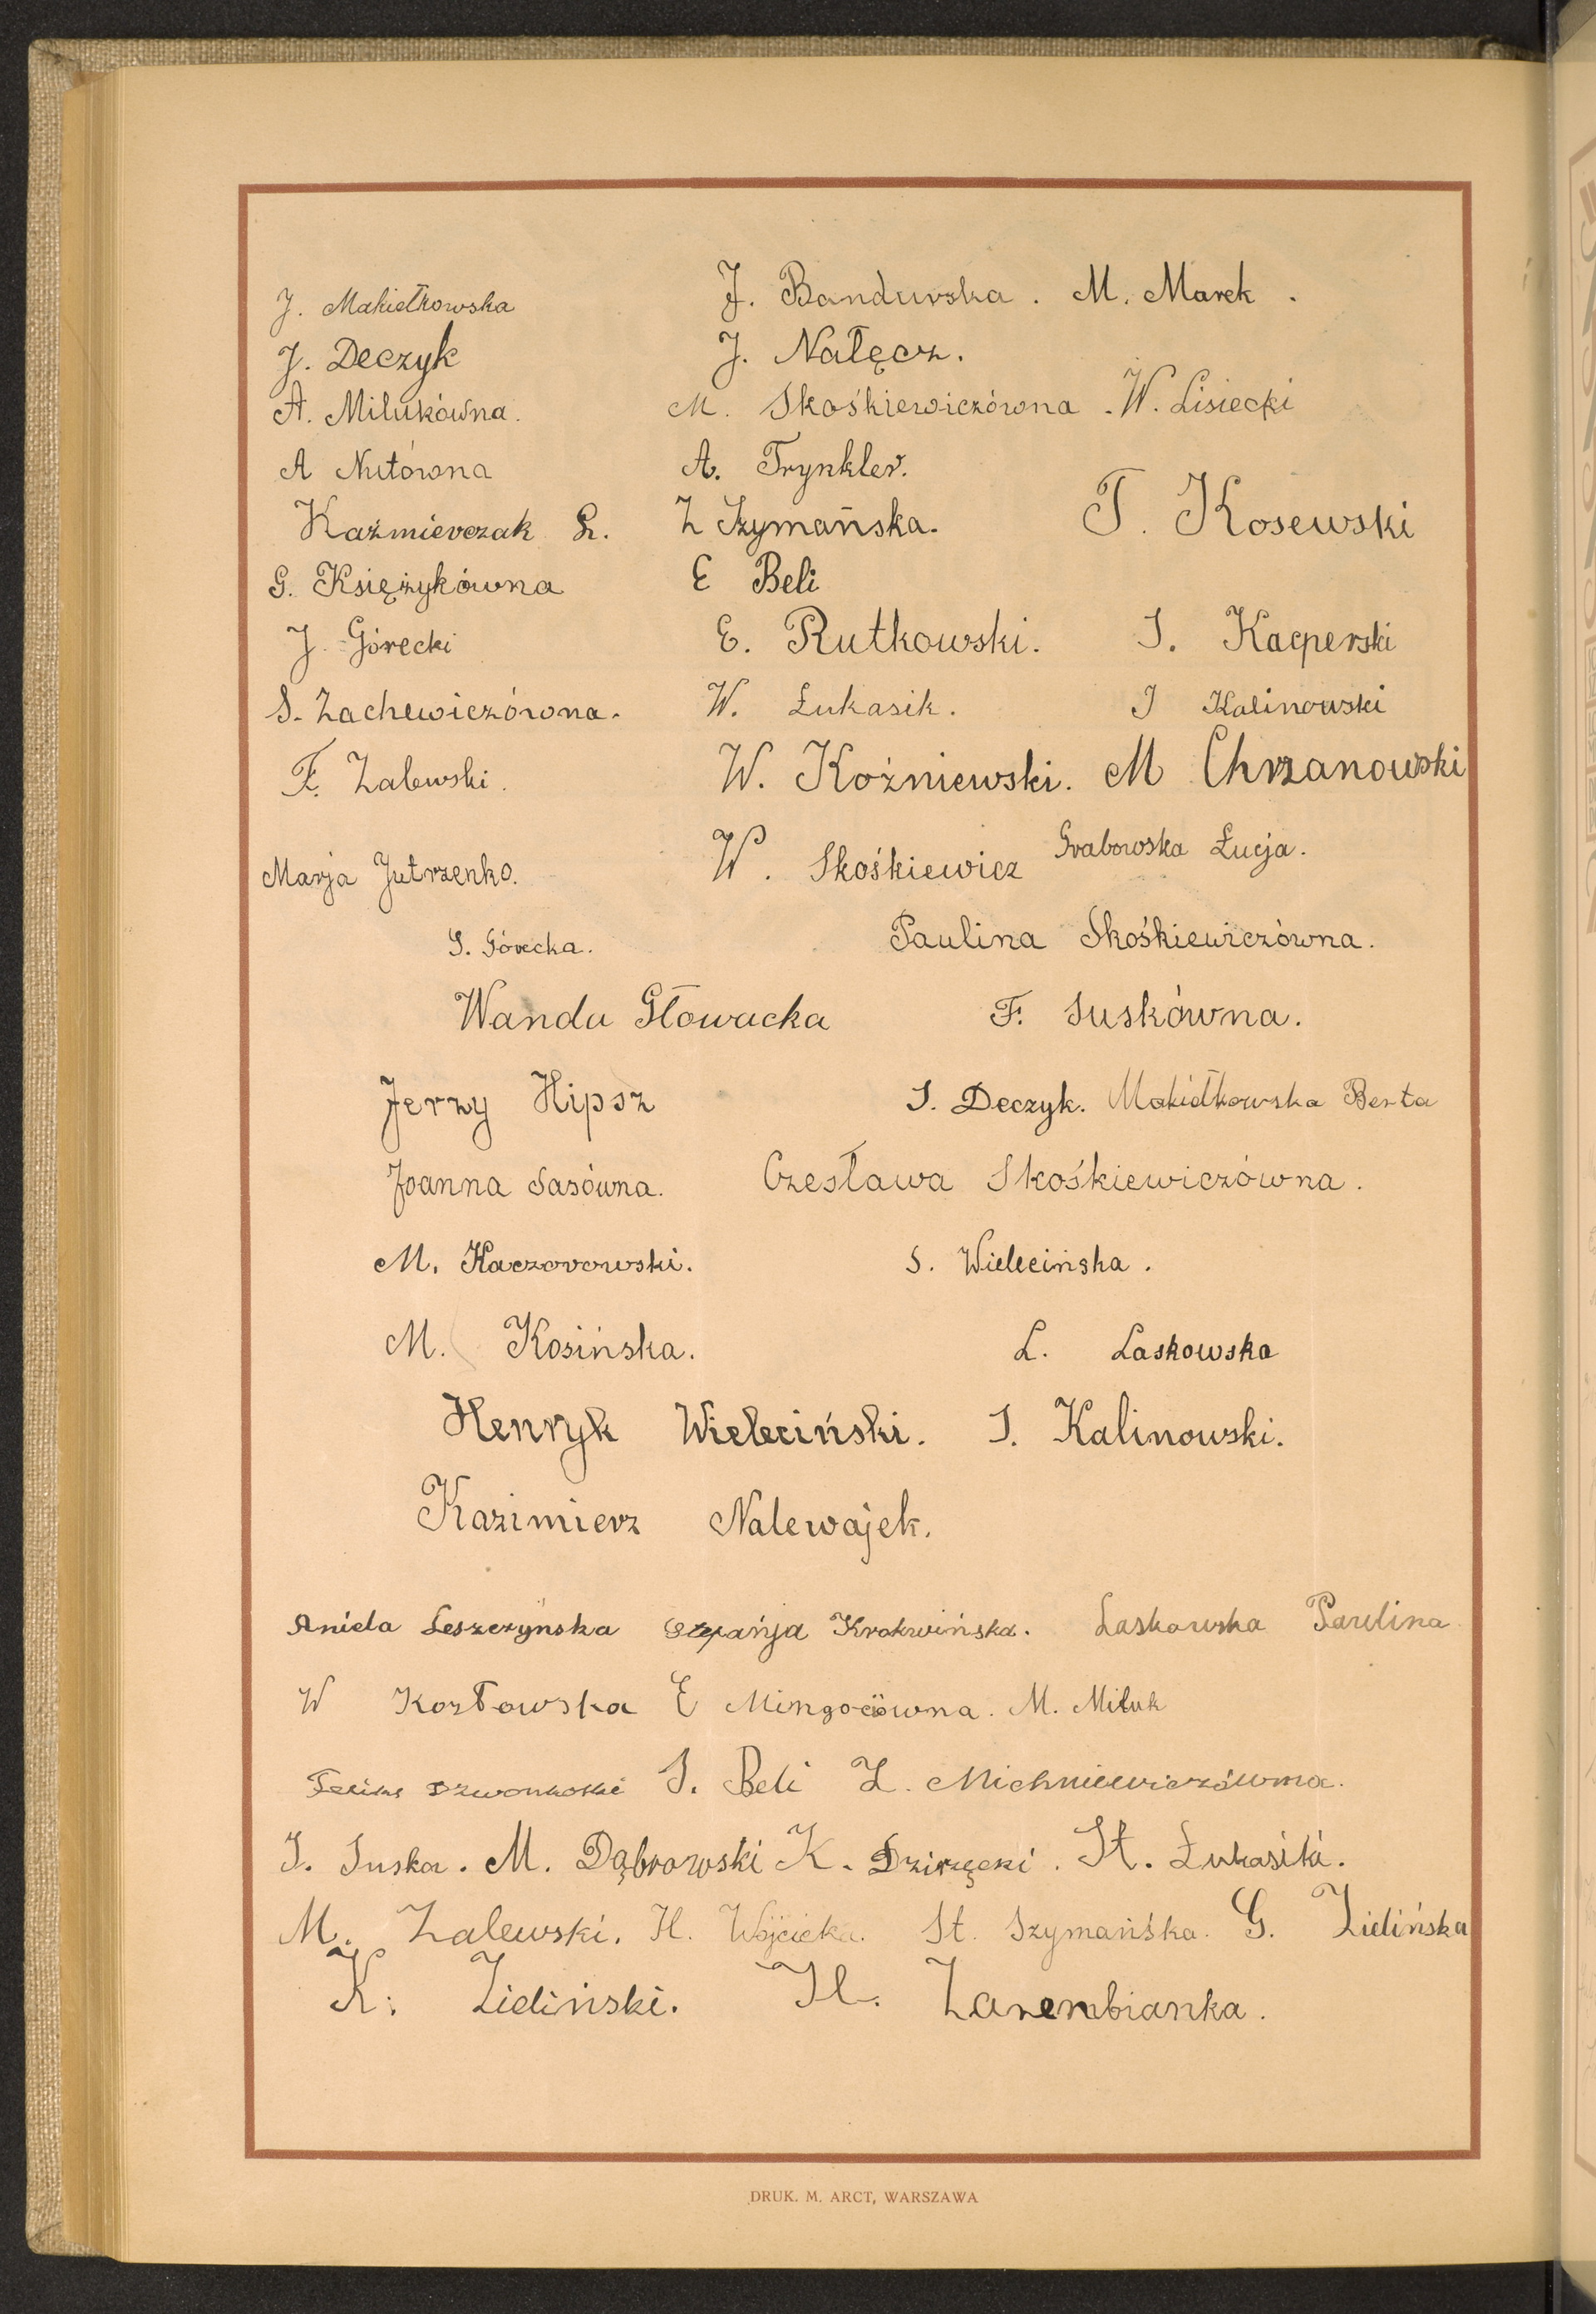 J. Makiełkowska J. Bandurska. M. Marek.
J. Deczyk J. Nałęcz.
A. Milukówna. M. Skośkiewiczówna. W. Lisiecki
A Nutówna A. Trynkler.
Kaźmierczak L. Z Szymańska. T. Kosewski
G. Księżykówna E Beli
J. Górecki E. Rutkowski. S. Kacperski
S. Zachewiczówna. W. Łukasik. J Kalinowski
F. Zalewski. W. Koźniewski. M Chrzanowski
Marja Jutrzenko. W. Skośkiewicz Grabowska Łucja.
S. Górecka. Paulina Skośkiewiczówna.
Wanda Głowacka F. Suskówna.
Jerzy Hipsz S. Deczyk. Makiełkowska Berta
Joanna Sasówna. Czesława Skośkiewiczówna.
M. Kaczorowski. S. Wielecińska.
M. Kosińska. L. Laskowska
Henryk Wieleciński. S. Kalinowski.
Kazimierz Nalewajek.
Aniela Leszczyńska Krakwińska. Laskowska Paulina
W Kozłowska E M. Miluk
S. Beli Z. Michniewiczówna.
S. Suska. M. Dąbrowski K. St. Łukasik.
M. Zalewski. H. Wójcicka. St. Szymańska. G. Zielińska
K. Zieliński. H. Zarembianka.
DRUK. M. ARCT, WARSZAWA